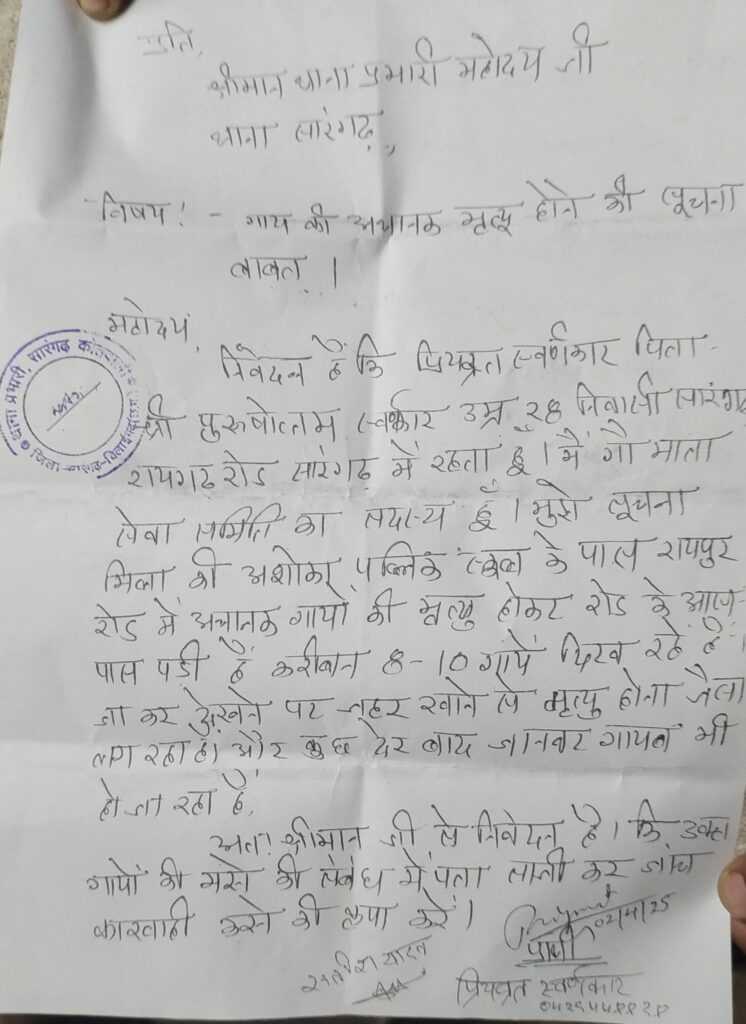 प्रति,
श्रीमान थाना प्रभारी महोदय जी
थाना सारंगढ़,
विषय! - गाय की अचानक मृत्यू होने की सूचना
बाबत् ।
महोदय,
निवेदन है कि प्रियव्रत स्वर्णकार पिता -
श्री पुरुषोत्तम स्वर्णकार उम्र २८ निवासी सारंगढ़
रायगढ़ रोड सारंगढ़ में रहता हूँ । मैं गौ माता
सेवा समिति का सदस्य हूँ । मुझे सूचना
मिला की अशोका पब्लिक स्कूल के पास रायपुर
रोड में अचानक गायों की मृत्यु होकर रोड के आस-
पास पड़ी हैं करीबन 8-10 गायें दिख रहे हैं ।
जा कर देखने पर जहर खाने से मृत्यु होना जैसा
लग रहा है। और कुछ देर बाद जानवर गायब भी
हो जा रहा है,
अतः श्रीमान जी से निवेदन है । कि उक्त
गायों की मरने की संबंध में पता साजी कर जांच
कारवाही करने की कृपा करें ।
प्रार्थी
प्रियव्रत स्वर्णकार
थाना प्रभारी, सारंगढ़ कोतवाली